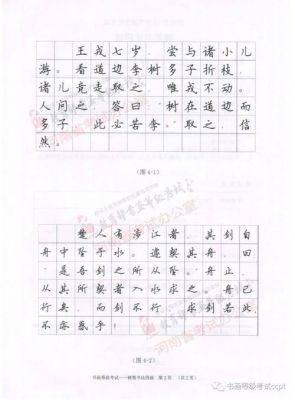 王戎七岁，尝与诸小儿
游。看道边李树多子折枝，
诸儿竞走取之，唯戎不动。
人问之，答曰：树在道边而
多子，此必苦李。取之，信
然。
(图4-1)
楚人有涉江者，其剑自
舟中坠于水。遽契其舟，曰：
是吾剑之所从坠。舟止，
从其所契者入水求之。舟已
行矣，而剑不行，求剑若此，
不亦惑乎！
(图4-2)
书画等级考试——硬笔书法四级 第2页 (共2页)
书画等级考试ccpt